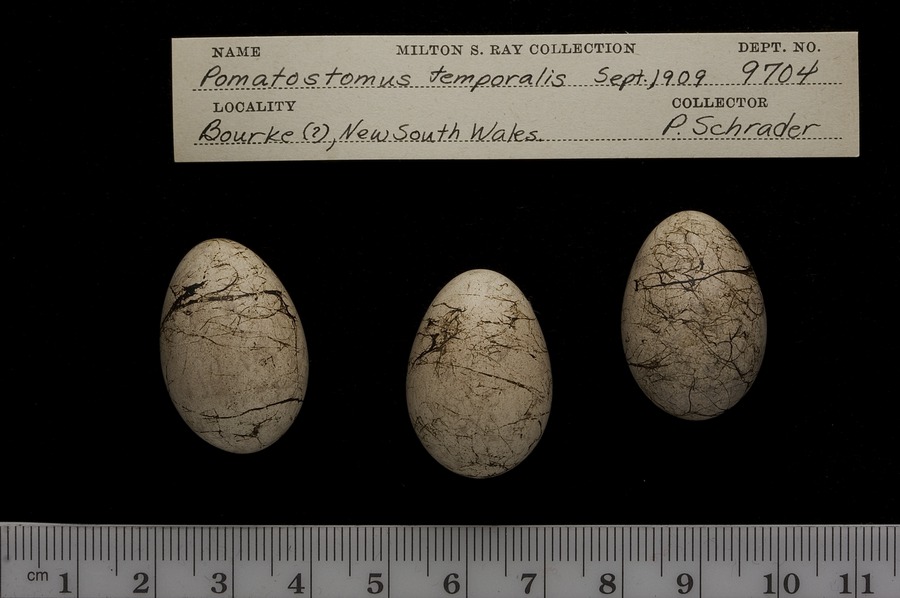 NAME MILTON S. RAY COLLECTION DEPT. NO.
Pomatostomus temporalis Sept., 1909 9704
LOCALITY COLLECTOR
Bourke (?), New South Wales. P. Schrader
cm 1 2 3 4 5 6 7 8 9 10 11